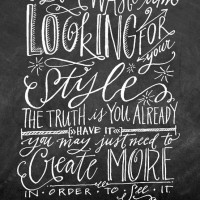 WASTE time
LOOKING FOR
your
Style
THE TRUTH is YOU ALREADY
HAVE IT
you may just need to
Create MORE
IN ORDER TO See IT